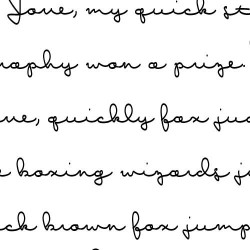 Jove, my quick st
raphy won a prize.
ve, quickly fox ju
boxing wizards j
ck brown fox jump